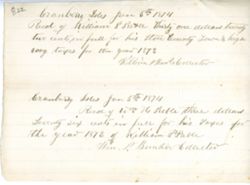 Cranberry Isles Jan 5th 1874
Recd of William P Preble Thirty one dollars twenty
five cents in full for his State County Town & high
way taxes for the year 1873
William P Bunker Collector
Cranberry Isles Jan 5th 1874
Recd of Wm P Preble three dollars
Twenty six cents in full for his Taxes for
the year 1873 of William Preble
Wm. P Bunker Collector